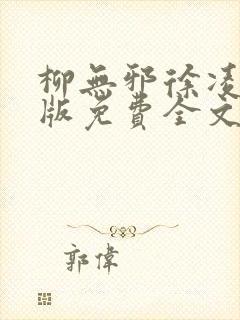 柳無邪徐凌
版免費全文
郭偉